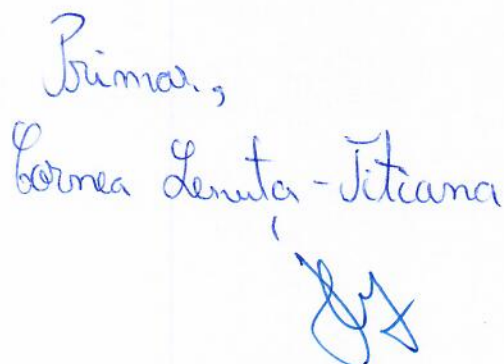 Primar,
Cornea Lenuța-Titiana